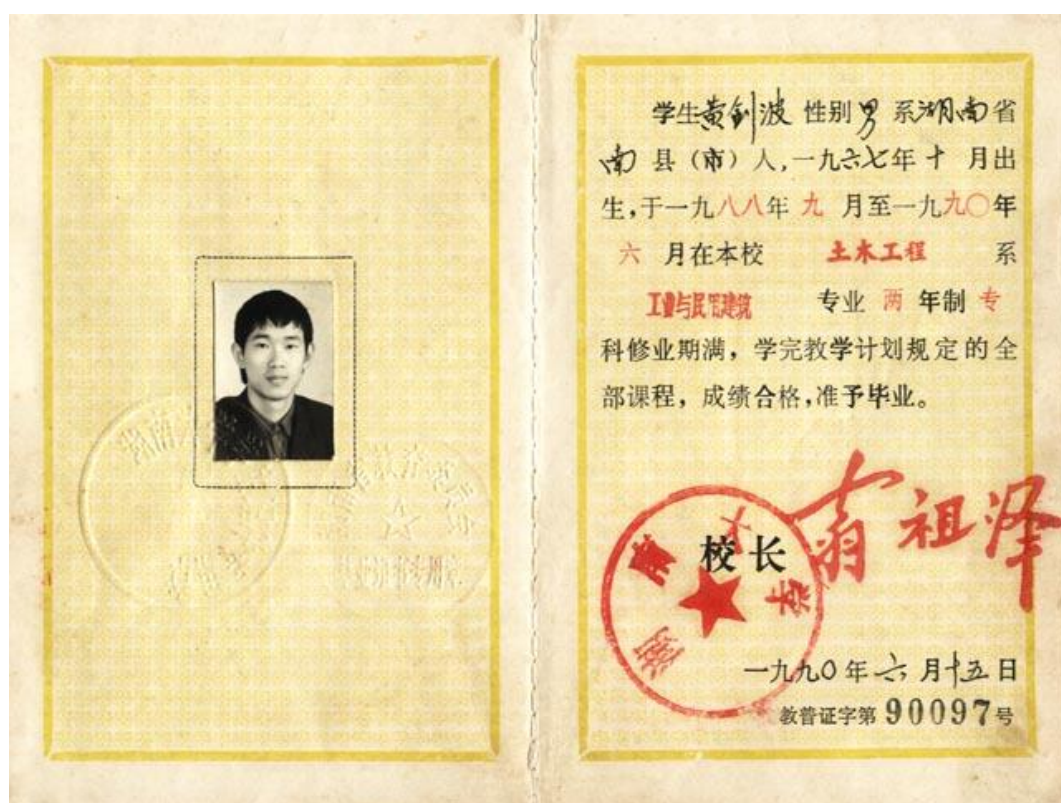 学生黄钊波 性别 男 系湖南省
南 县（市）人，一九六七年 十 月出
生，于一九八八年 九 月至一九九〇年
六 月在本校 土木工程 系
工业与民用建筑 专业 两 年制 专
科修业期满，学完教学计划规定的全
部课程，成绩合格，准予毕业。
湖南大学
校长 翁祖泽
一九九〇年六月十五日
教普证字第 90097号